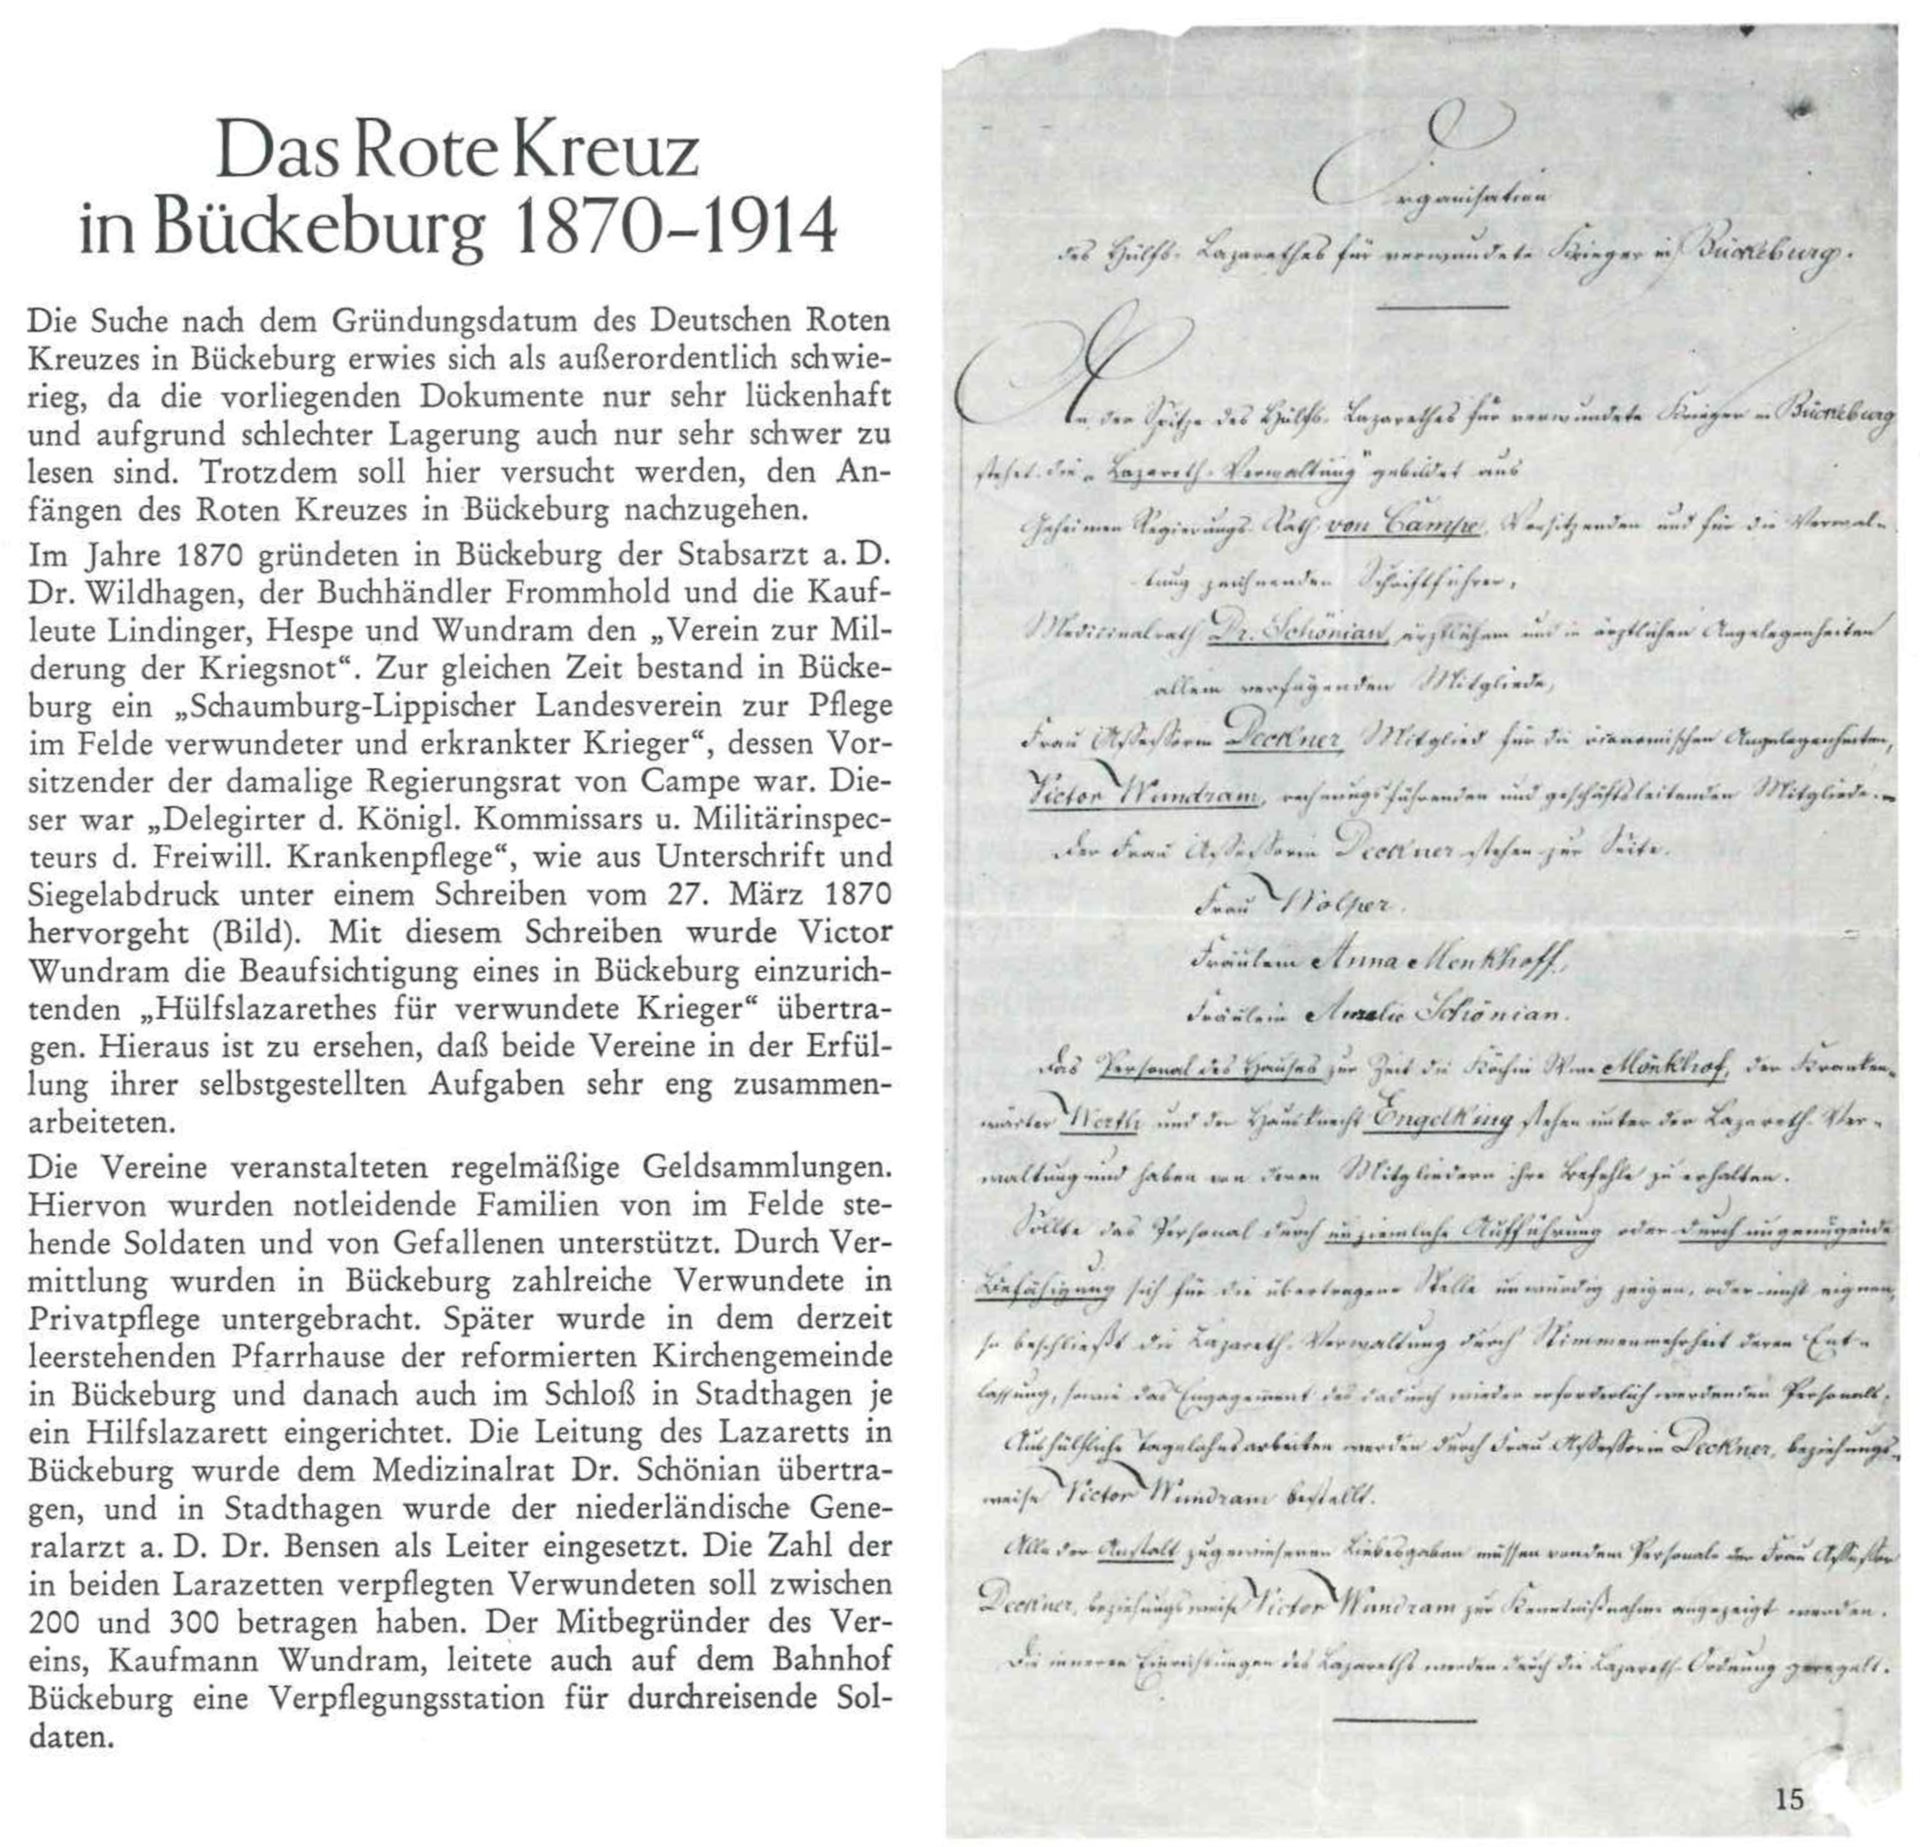 Das Rote Kreuz
in Bückeburg 1870–1914
Die Suche nach dem Gründungsdatum des Deutschen Roten
Kreuzes in Bückeburg erwies sich als außerordentlich schwie-
rieg, da die vorliegenden Dokumente nur sehr lückenhaft
und aufgrund schlechter Lagerung auch nur sehr schwer zu
lesen sind. Trotzdem soll hier versucht werden, den An-
fängen des Roten Kreuzes in Bückeburg nachzugehen.
Im Jahre 1870 gründeten in Bückeburg der Stabsarzt a. D.
Dr. Wildhagen, der Buchhändler Frommhold und die Kauf-
leute Lindinger, Hespe und Wundram den „Verein zur Mil-
derung der Kriegsnot“. Zur gleichen Zeit bestand in Bücke-
burg ein „Schaumburg-Lippischer Landesverein zur Pflege
im Felde verwundeter und erkrankter Krieger“, dessen Vor-
sitzender der damalige Regierungsrat von Campe war. Die-
ser war „Delegirter d. Königl. Kommissars u. Militärinspec-
teurs d. Freiwill. Krankenpflege“, wie aus Unterschrift und
Siegelabdruck unter einem Schreiben vom 27. März 1870
hervorgeht (Bild). Mit diesem Schreiben wurde Victor
Wundram die Beaufsichtigung eines in Bückeburg einzurich-
tenden „Hülfslazarethes für verwundete Krieger“ übertra-
gen. Hieraus ist zu ersehen, daß beide Vereine in der Erfül-
lung ihrer selbstgestellten Aufgaben sehr eng zusammen-
arbeiteten.
Die Vereine veranstalteten regelmäßige Geldsammlungen.
Hiervon wurden notleidende Familien von im Felde ste-
hende Soldaten und von Gefallenen unterstützt. Durch Ver-
mittlung wurden in Bückeburg zahlreiche Verwundete in
Privatpflege untergebracht. Später wurde in dem derzeit
leerstehenden Pfarrhause der reformierten Kirchengemeinde
in Bückeburg und danach auch im Schloß in Stadthagen je
ein Hilfslazarett eingerichtet. Die Leitung des Lazaretts in
Bückeburg wurde dem Medizinalrat Dr. Schönian übertra-
gen, und in Stadthagen wurde der niederländische Gene-
ralarzt a. D. Dr. Bensen als Leiter eingesetzt. Die Zahl der
in beiden Larazetten verpflegten Verwundeten soll zwischen
200 und 300 betragen haben. Der Mitbegründer des Ver-
eins, Kaufmann Wundram, leitete auch auf dem Bahnhof
Bückeburg eine Verpflegungsstation für durchreisende Sol-
daten.
Organisation
des Hülfs-Lazarethes für verwundete Krieger in Bückeburg.
An der Spitze des Hülfs-Lazarethes für verwundete Krieger in Bückeburg
stehet die „Lazareth-Verwaltung“ gebildet aus
Geheimen Regierungs-Rath von Campe, Vorsitzenden und für die Verwal-
tung zeichnenden Schriftführer,
Medicinalrath Dr. Schönian, ärztlichem und in ärztlichen Angelegenheiten
allein verfügenden Mitgliede,
Frau Assessorin Deckner, Mitglied für die öconomischen Angelegenheiten,
Victor Wundram, rechnungsführenden und geschäftsleitenden Mitgliede.
Der Frau Assessorin Deckner stehen zur Seite.
Frau Wölper.
Fräulein Anna Menkhoff,
Fräulein Amalie Schönian.
Das Personal des Hauses zur Zeit die Köchin Wwe Mönkhof, der Kranken-
wärter Werth und der Hausknecht Engelking stehen unter der Lazareth-Ver-
waltung und haben von deren Mitgliedern ihre Befehle zu erhalten.
Sollte das Personal durch unziemliche Aufführung oder durch ungenügende
Befähigung sich für die übertragene Stelle unwürdig zeigen, oder nicht eignen,
so beschließt die Lazareth-Verwaltung durch Stimmenmehrheit deren Ent-
lassung, sowie das Engagement des dadurch wieder erforderlich werdenden Personals.
Aushülfliche Tagelohnsarbeiten werden durch Frau Assessorin Deckner, beziehungs-
weise Victor Wundram bestellt.
Alle der Anstalt zugewiesenen Liebesgaben müssen von dem Personale der Frau Assessor
Deckner, beziehungsweise Victor Wundram zur Kenntnißnahme angezeigt werden.
Die inneren Einrichtungen des Lazareths werden durch die Lazareth-Ordnung geregelt.
15